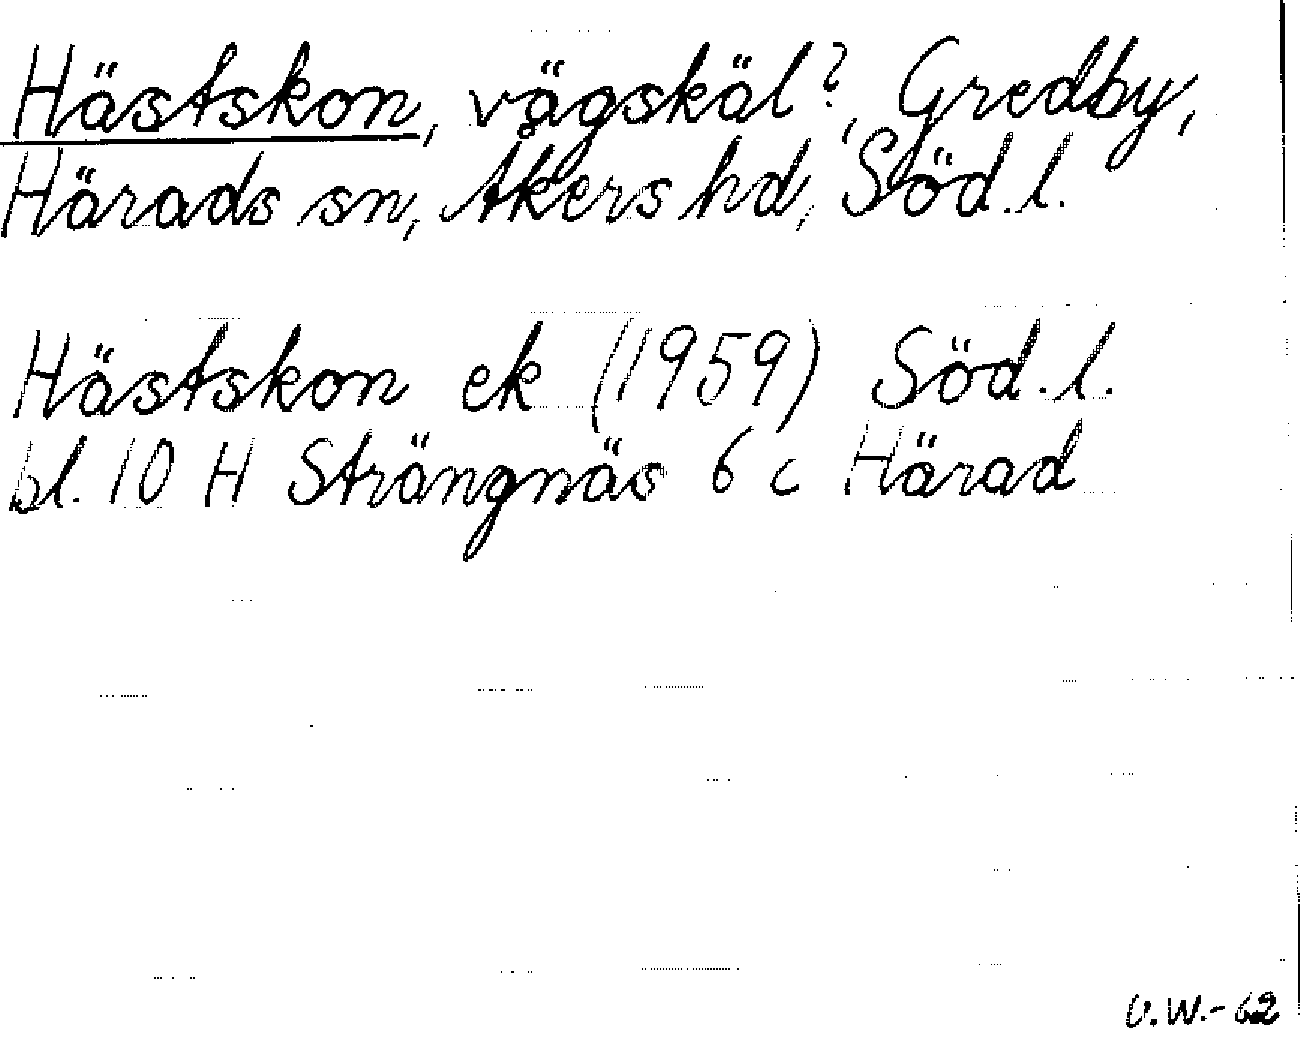 Hästskon, vägskäl?, Gredby,
Härads sn, Åkers hd, Söd.l.
Hästskon ek (1959) Söd.l.
bl. 10 H Strängnäs 6 c Härad
U.W.-62